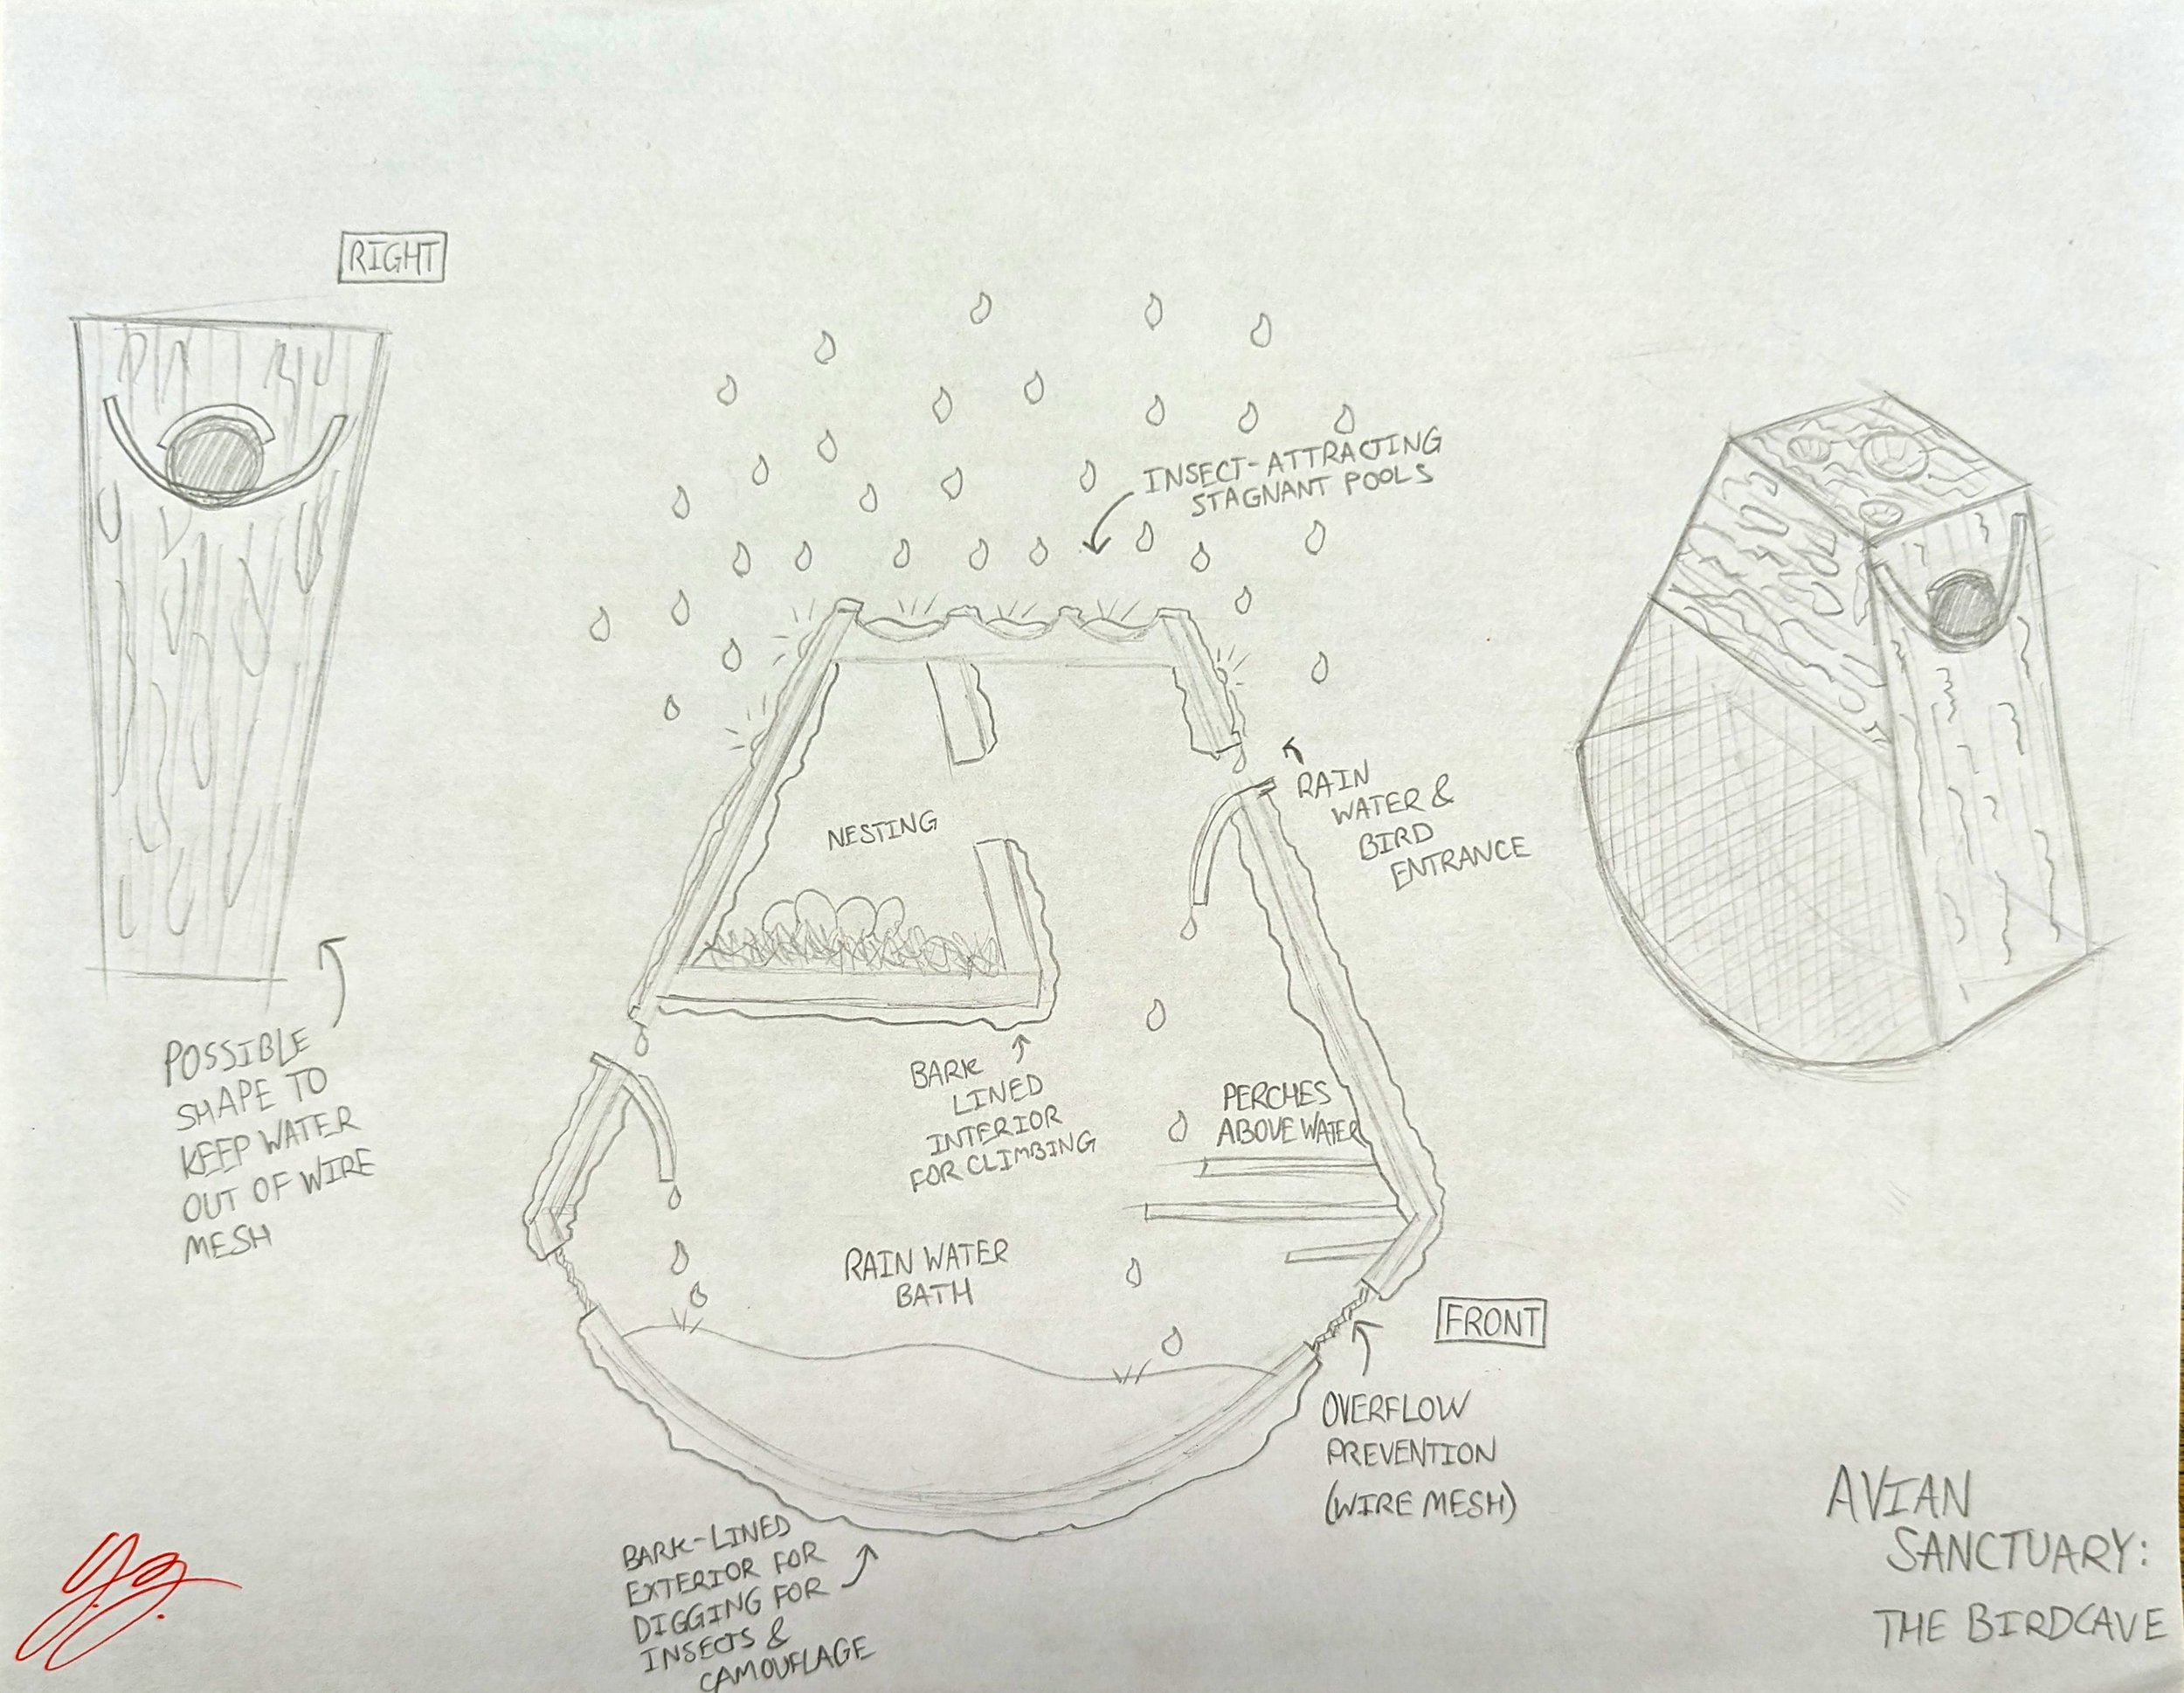 RIGHT
INSECT-ATTRACTING
STAGNANT POOLS
RAIN
WATER &
BIRD
ENTRANCE
NESTING
POSSIBLE
SHAPE TO
KEEP WATER
OUT OF WIRE
MESH
BARK
LINED
INTERIOR
FOR CLIMBING
PERCHES
ABOVE WATER
RAIN WATER
BATH
FRONT
OVERFLOW
PREVENTION
(WIRE MESH)
BARK-LINED
EXTERIOR FOR
DIGGING FOR
INSECTS &
CAMOUFLAGE
AVIAN
SANCTUARY:
THE BIRDCAVE